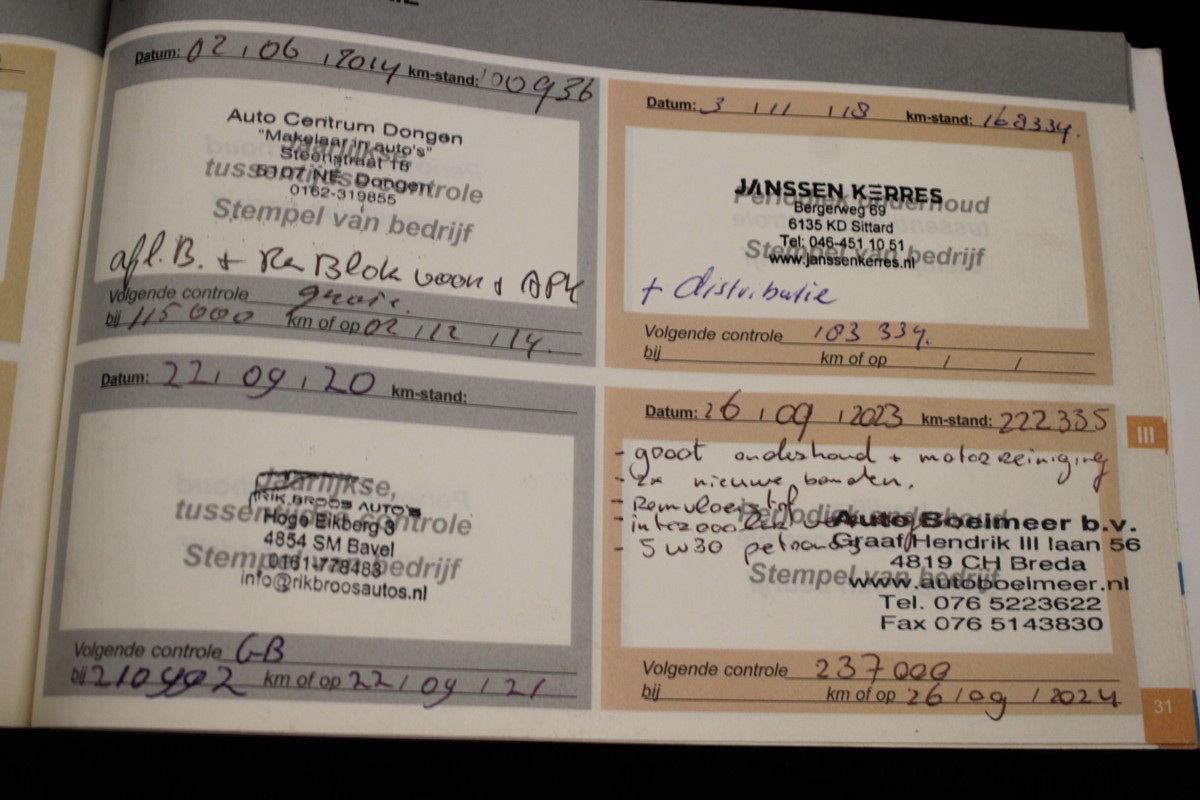 Datum: 02 / 06 / 2014 km-stand: 100936
Auto Centrum Dongen
"Makelaar in auto's"
Steenstraat 18
5107 NE Dongen
0162-319855
Jaarlijkse,
tussentijdse controle
Stempel van bedrijf
afl.B. + Re Blok voor + APK
Volgende controle
bij 115000 km of op 02 / 12 / 14.
Datum: 3 / 11 / 18 km-stand: 168334.
JANSSEN KERRES
Bergerweg 69
6135 KD Sittard
Tel: 046-451 10 51
www.janssenkerres.nl
Periodiek onderhoud
Stempel van bedrijf
+ distributie
Volgende controle 183 334.
bij km of op / /
Datum: 22 / 09 / 20 km-stand:
Jaarlijkse,
tussentijdse controle
Stempel van bedrijf
RIK BROOS AUTO'S
Hoge Eikberg 3
4854 SM Bavel
0161-778483
info@rikbroosautos.nl
Volgende controle GB
bij km of op 22 / 09 / 21
Datum: 26 / 09 / 2023 km-stand: 222335
- groot onderhoud + motorreiniging
- 2x nieuwe banden.
- Remvloeistof
-
- 5w30
Periodiek onderhoud
Stempel van bedrijf
Auto Boeimeer b.v.
Graaf Hendrik III laan 56
4819 CH Breda
www.autoboeimeer.nl
Tel. 076 5223622
Fax 076 5143830
Volgende controle 237000
bij km of op 26 / 09 / 2024
III
31